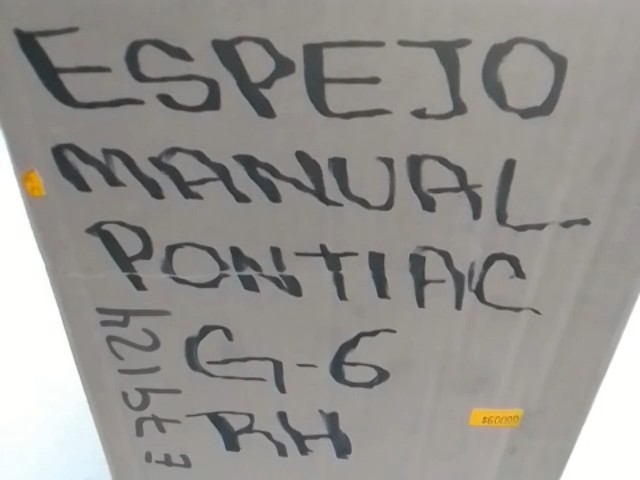 ESPEJO
MANUAL
PONTIAC
G-6
RH
$60000